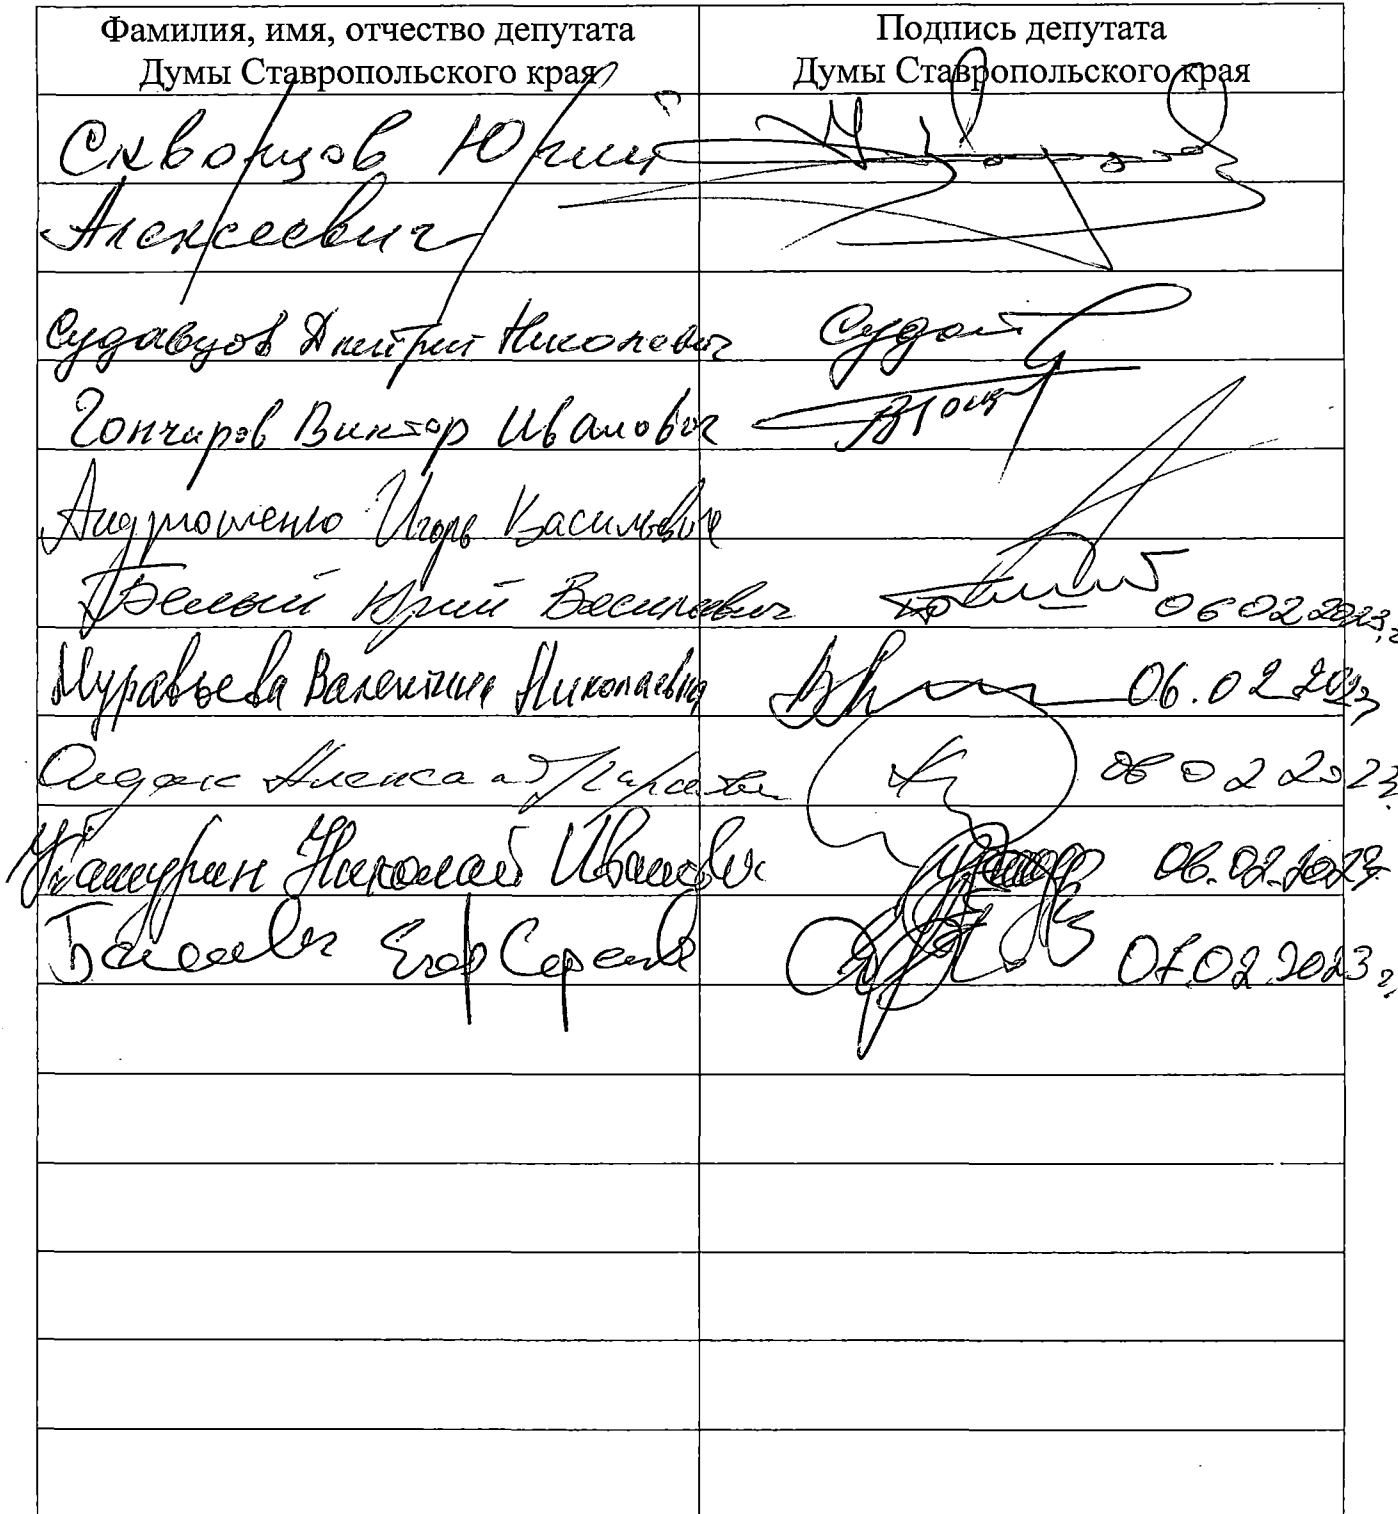 Фамилия, имя, отчество депутата
Думы Ставропольского края
Подпись депутата
Думы Ставропольского края
Скворцов Юрий
Алексеевич
Судавцов Дмитрий Николаевич
Гончаров Виктор Иванович
Андрющенко Игорь Васильевич
Белый Юрий Васильевич 06 02 2023 г
Муравьева Валентина Николаевна 06.02 2023
06 02 2023
Николай Иванович 06.02.2023
Егор Сергеевич 07.02.2023 г.